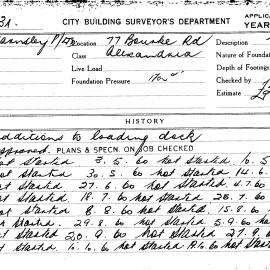 3A. CITY BUILDING SURVEYOR'S DEPARTMENT APPLIC
YEAR
Location 77 Bourke Rd Description
Class Alexandria Nature of Foundat
Live Load Depth of Footings
Foundation Pressure Checked by
HISTORY
additions to loading dock
approved. PLANS & SPECN. ON JOB CHECKED
not started 3. 5. 60 not started 10. 5.
not started 30. 5. 60 not started 14. 6.
not started 27. 6. 60 not started 4. 7. 60
not started 18. 7. 60 not started 25. 7. 60
not started 8. 8. 60 not started 15. 8. 60
not started 29. 8. 60 not started 5. 9. 60
not started 20. 9. 60 not started 27. 9.
not started